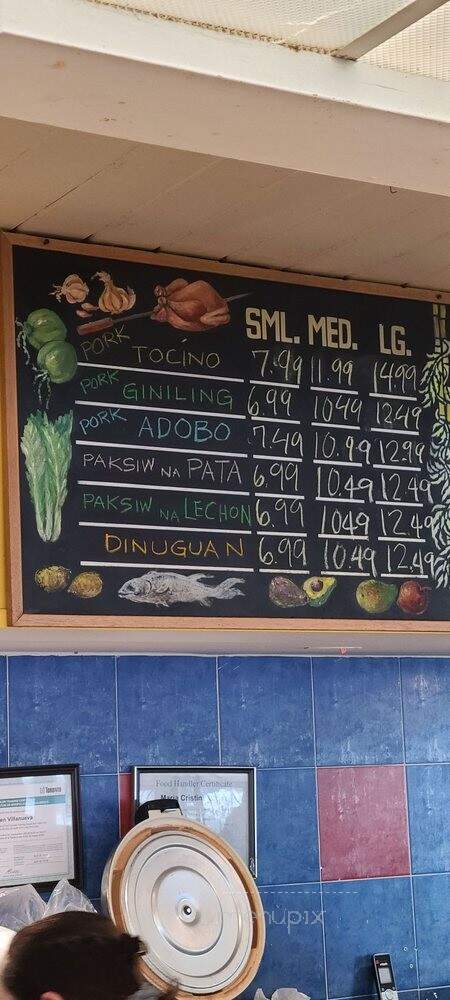 SML. MED. LG.
PORK TOCINO 7.99 11.99 14.99
PORK GINILING 6.99 1049 1249
PORK ADOBO 7.49 10.99 12.99
PAKSIW NA PATA 6.99 10.49 12.49
PAKSIW NA LECHON 6.99 1049 12.49
DINUGUAN 6.99 10.49 12.49
Toronto
Food Handler Certificate
Maria Cristin
Villanueva
menupix